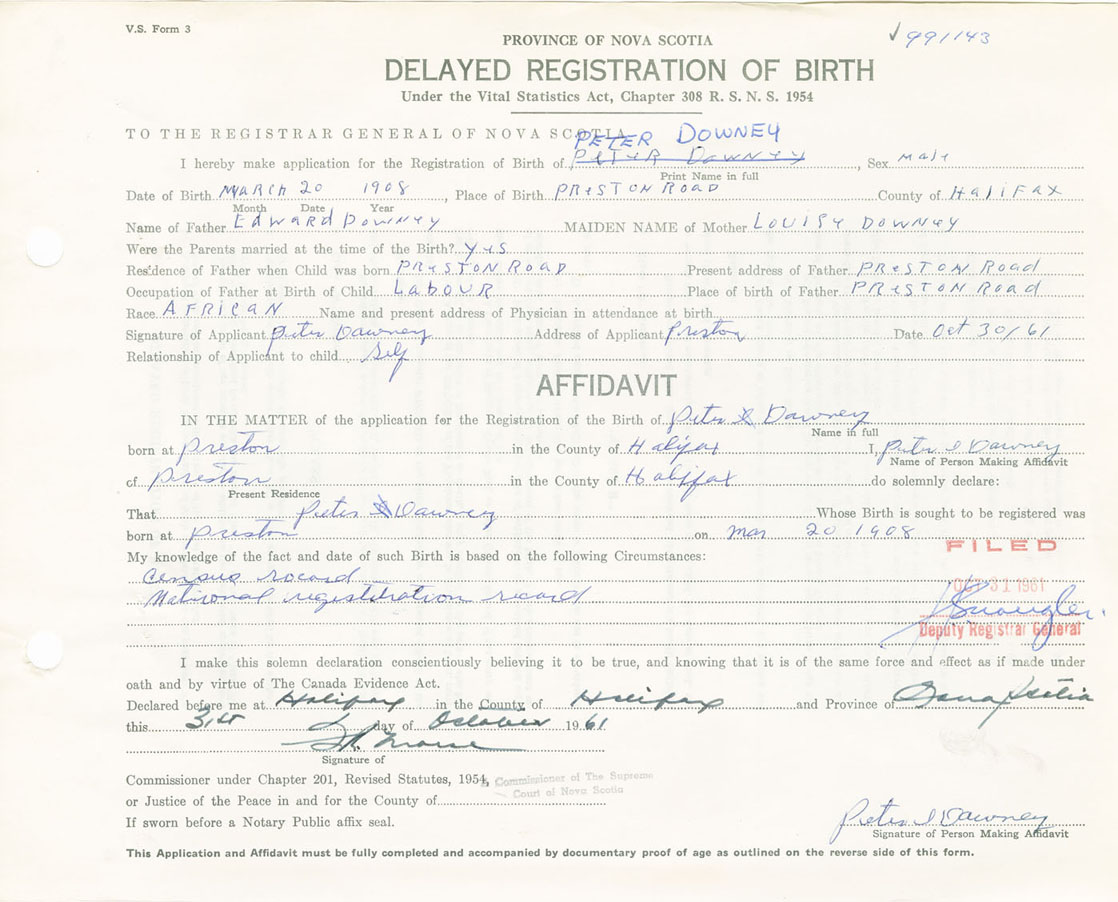 V.S. Form 3
✓991143
PROVINCE OF NOVA SCOTIA
DELAYED REGISTRATION OF BIRTH
Under the Vital Statistics Act, Chapter 308 R. S. N. S. 1954
TO THE REGISTRAR GENERAL OF NOVA SCOTIA
PETER DOWNEY
I hereby make application for the Registration of Birth of PETER DOWNEY, Sex male
Print Name in full
Date of Birth MARCH 20 1908, Place of Birth PRESTON ROAD County of HALIFAX
Month Date Year
Name of Father EdWARd DOWNEY MAIDEN NAME of Mother LOUISY DOWNEY
Were the Parents married at the time of the Birth? yes
Residence of Father when Child was born PRESTON ROAD Present address of Father PRESTON Road
Occupation of Father at Birth of Child LABOUR Place of birth of Father PRESTON Road
Race AFRICAN Name and present address of Physician in attendance at birth
Signature of Applicant Peter Downey Address of Applicant Preston Date Oct 30/61
Relationship of Applicant to child Self
AFFIDAVIT
IN THE MATTER of the application for the Registration of the Birth of Peter Downey
Name in full
born at Preston in the County of Halifax I, Peter I Downey
Name of Person Making Affidavit
of Preston in the County of Halifax do solemnly declare:
Present Residence
That Peter Downey Whose Birth is sought to be registered was
born at Preston on Mar 20 1908
My knowledge of the fact and date of such Birth is based on the following Circumstances:
FILED
Census record
OCT 31 1961
National registration record
Deputy Registrar General
I make this solemn declaration conscientiously believing it to be true, and knowing that it is of the same force and effect as if made under
oath and by virtue of The Canada Evidence Act.
Declared before me at Halifax in the County of Halifax and Province of Nova Scotia
this 31st day of October 1961
Signature of
Commissioner under Chapter 201, Revised Statutes, 1954, Commissioner of The Supreme
Court of Nova Scotia
or Justice of the Peace in and for the County of
If sworn before a Notary Public affix seal.
Peter I Downey
Signature of Person Making Affidavit
This Application and Affidavit must be fully completed and accompanied by documentary proof of age as outlined on the reverse side of this form.